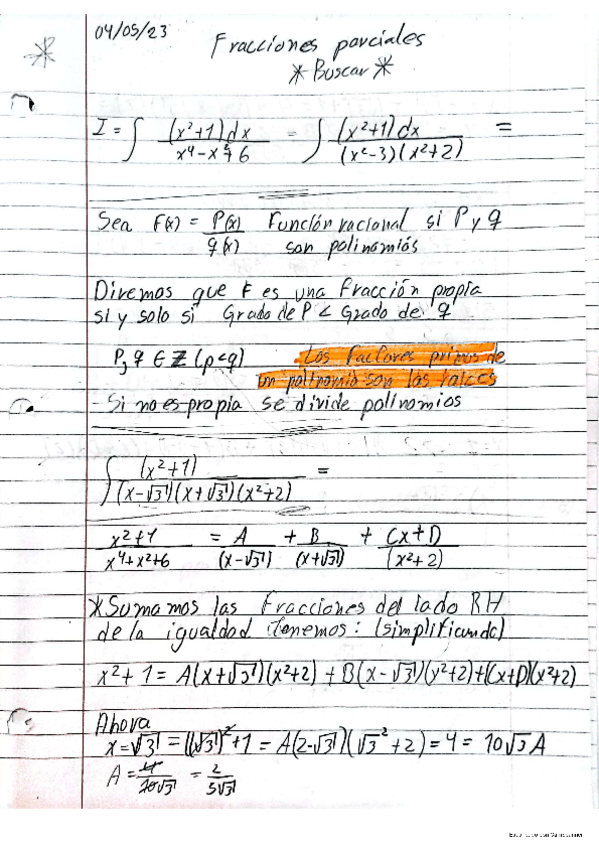 04/05/23
Fracciones parciales
* Buscar *
I = ∫ (x²+1)dx / x⁴-x²+6 = ∫ (x²+1)dx / (x²-3)(x²+2) =
Sea F(x) = P(x)/q(x) Función racional si P y q
son polinomiós
Diremos que F es una Fracción propia
si y solo si Grado de P < Grado de q
P, q ∈ Z (p<q) Los factores primos de
un polinomio son las raices
Si no es propia se divide polinomios
∫ (x²+1) / (x-√3)(x+√3)(x²+2) =
x²+1 / x⁴+x²+6 = A/(x-√3) + B/(x+√3) + Cx+D/(x²+2)
*Sumamos las Fracciones del lado RH
de la igualdad Tenemos: (simplificando)
x²+1 = A(x+√3)(x²+2) + B(x-√3)(y²+2)+(Cx+D)(x²+2)
Ahora
x=√3 = (√3)²+1 = A(2-√3)(√3²+2) = 4 = 10√3A
A = 4/10√3 = 2/5√3